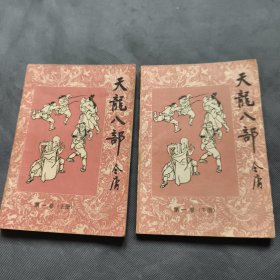 天龍八部
金庸
第一卷 上册
天龍八部
金庸
第一卷 下册